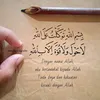 بِسْمِ اللهِ تَوَكَّلْتُ عَلَى اللهِ
لَا حَوْلَ وَلَا قُوَّةَ إِلَّا بِاللهِ
Dengan nama Allah,
aku bertawakal kepada Allah
Tiada daya dan kekuatan
kecuali dengan Allah